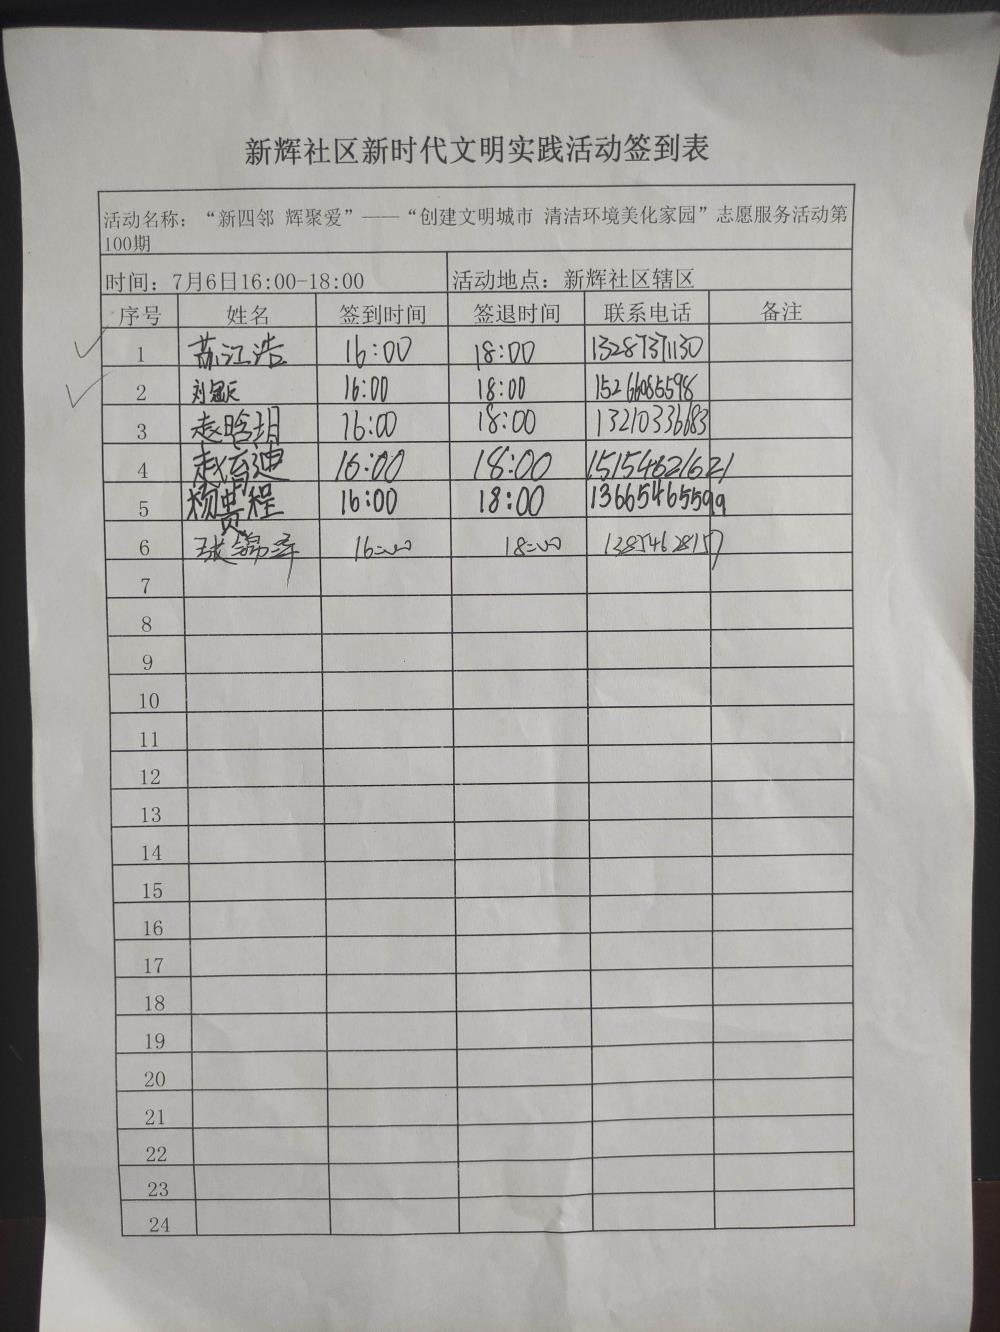 新辉社区新时代文明实践活动签到表
活动名称：“新四邻 辉聚爱”——“创建文明城市 清洁环境美化家园”志愿服务活动第
100期
时间：7月6日16:00-18:00 活动地点：新辉社区辖区
序号 姓名 签到时间 签退时间 联系电话 备注
1 苏江浩 16:00 18:00 13287371130
2 刘冠辰 16:00 18:00 15266085598
3 袁晗玥 16:00 18:00 13210336683
4 赵育迪 16:00 18:00 15154621621
5 杨贵程 16:00 18:00 13665465599
6 锦泽 16:00 18:00 13854628157
7
8
9
10
11
12
13
14
15
16
17
18
19
20
21
22
23
24